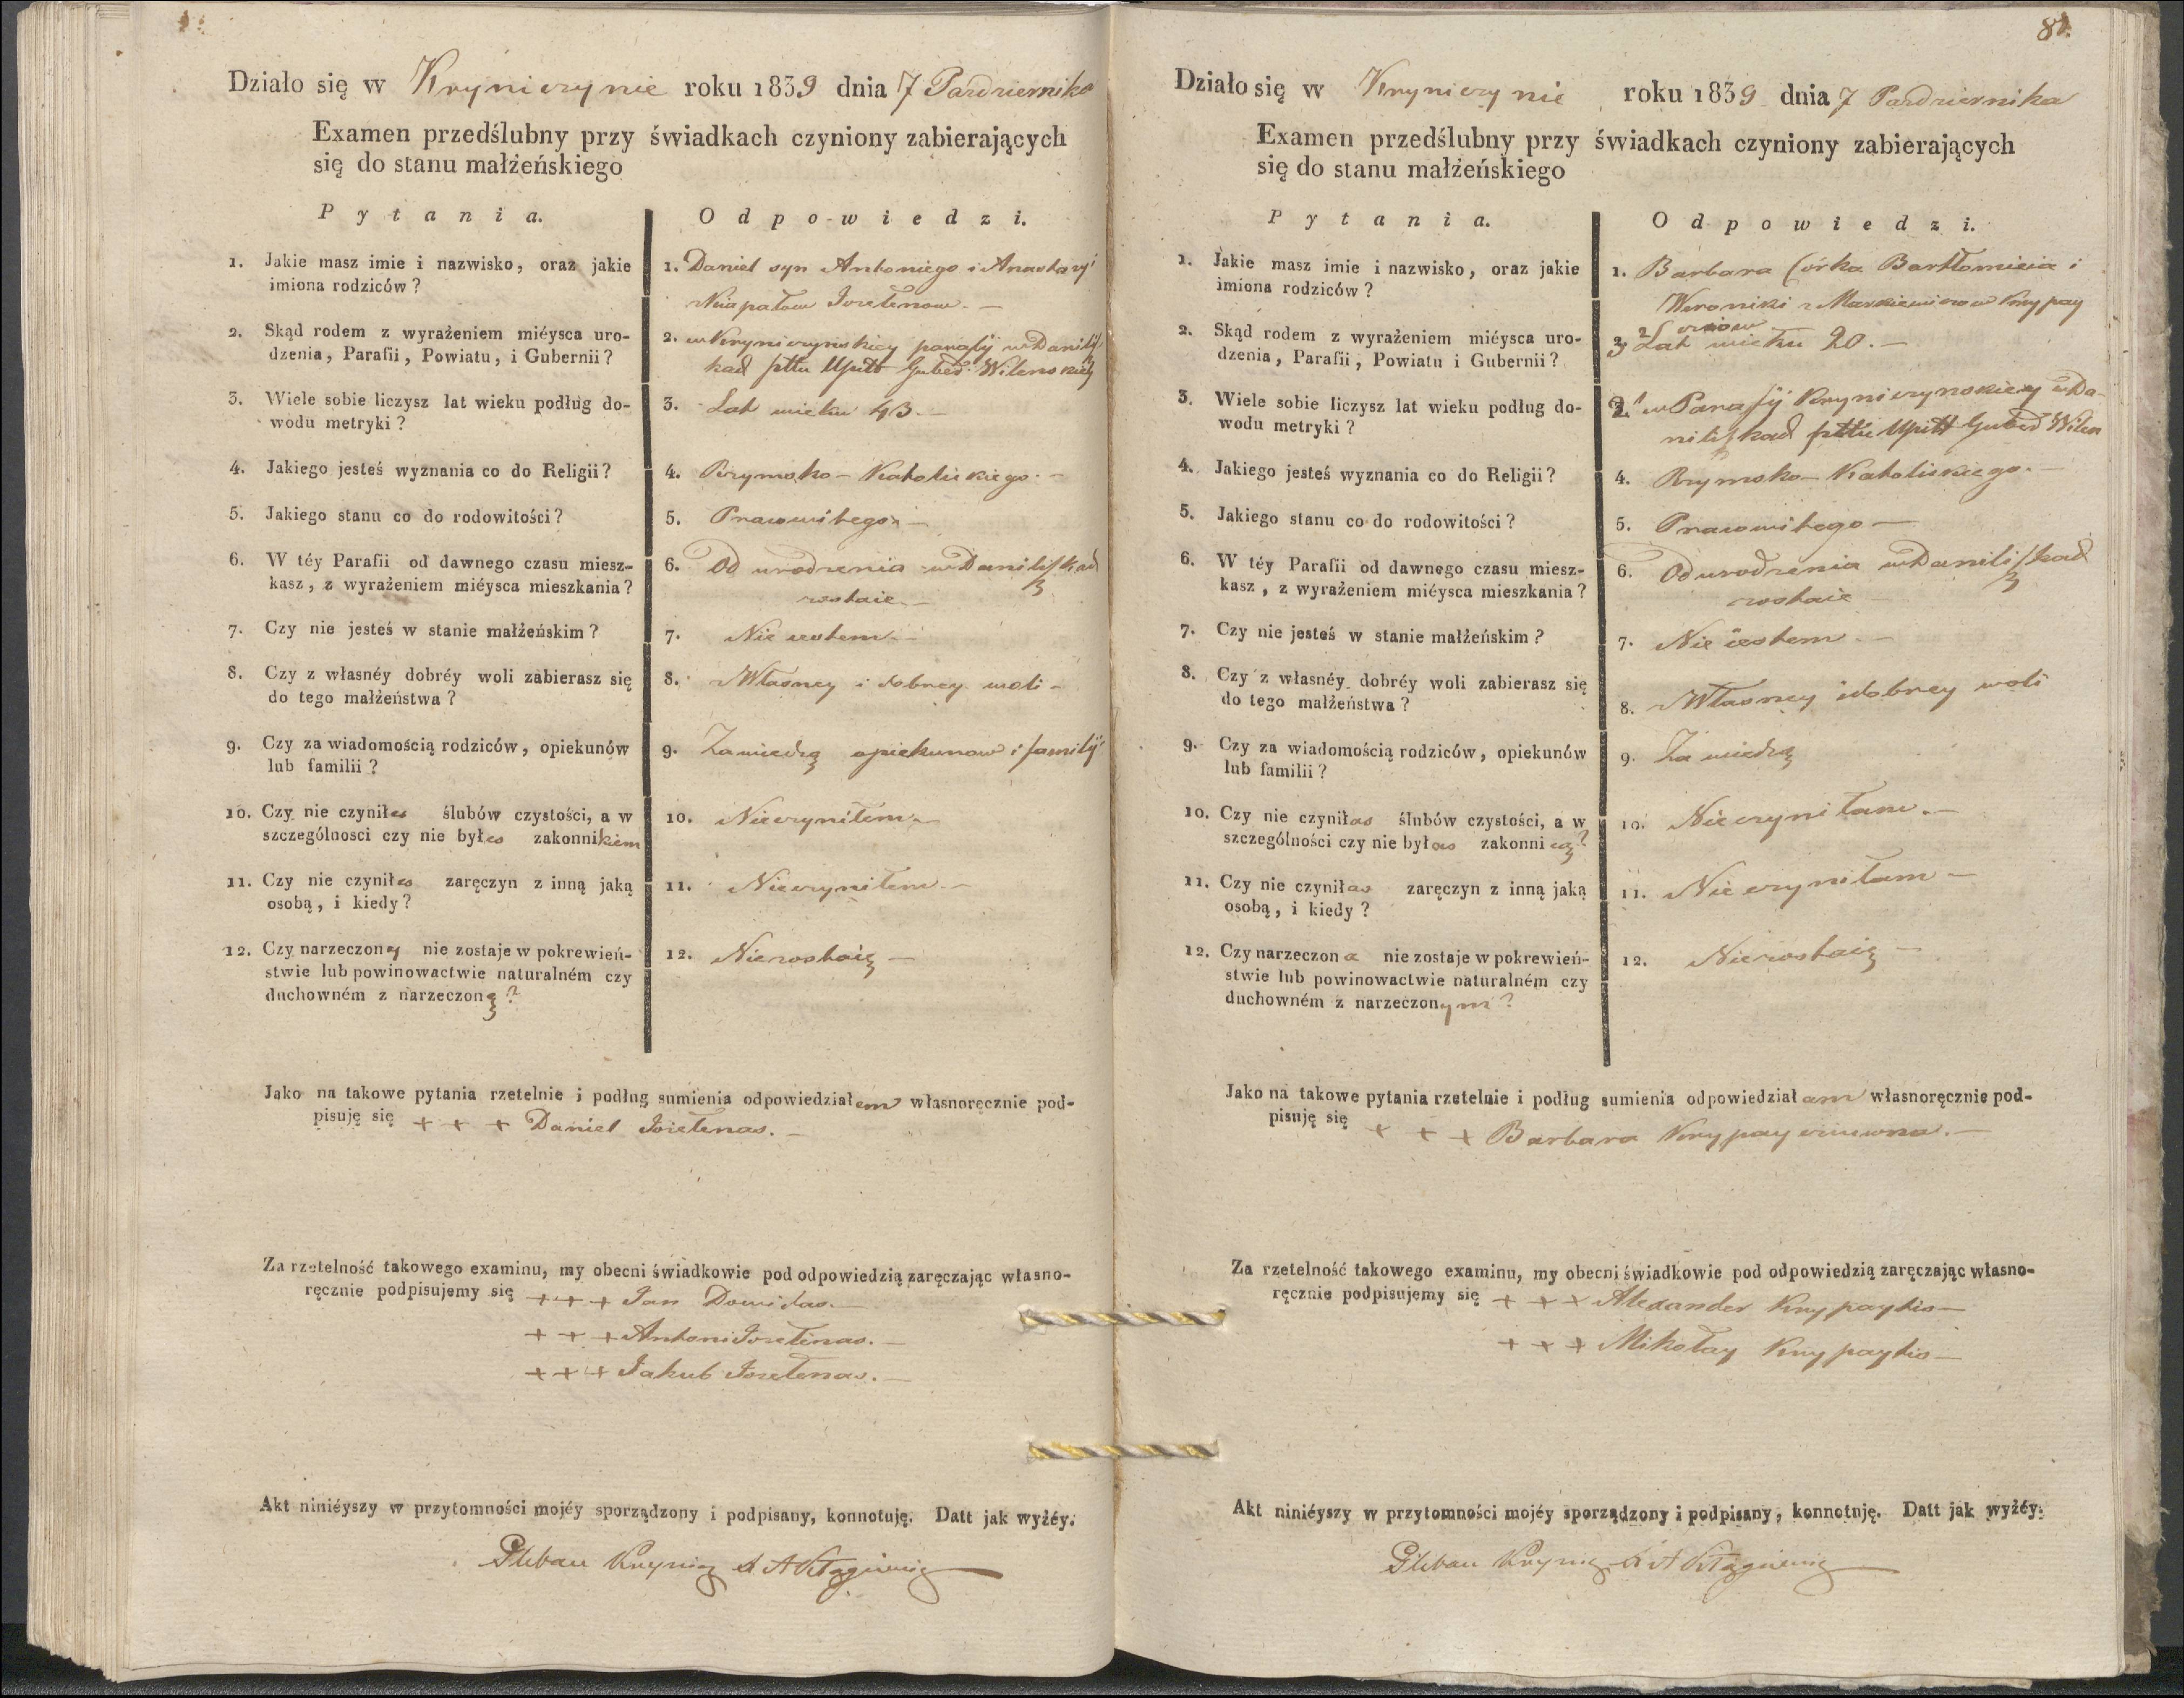 Działo się w Kryniczynie roku 1839 dnia 7 Pazdziernika
Examen przedślubny przy świadkach czyniony zabierających
się do stanu małżeńskiego
Pytania.
Odpowiedzi.
1. Jakie masz imie i nazwisko, oraz jakie
imiona rodziców?
1. Daniel syn Antoniego i Anastazyi
Jozełenow. —
2. Skąd rodem z wyrażeniem miéysca uro-
dzenia, Parafii, Powiatu, i Gubernii?
2. w Kryniczynskiey parafij w Danilisz
kach pttu Upitt Guber Wilenskiey
3. Wiele sobie liczysz lat wieku podług do-
wodu metryki?
3. Lat wieku 43. —
4. Jakiego jesteś wyznania co do Religii?
4. Rzymsko-Katolickiego. —
5. Jakiego stanu co do rodowitości?
5. Pracowitego —
6. W téy Parafii od dawnego czasu miesz-
kasz, z wyrażeniem miéysca mieszkania?
6. Od urodzenia w Daniliszkach
zostaie. —
7. Czy nie jesteś w stanie małżeńskim?
7. Nie iestem. —
8. Czy z własnéy dobréy woli zabierasz się
do tego małżeństwa?
8. Własney i dobrey woli —
9. Czy za wiadomością rodziców, opiekunów
lub familii?
9. Za wiedzą opiekunow i familij
10. Czy nie czyniłes ślubów czystości, a w
szczególnosci czy nie byłes zakonnikiem
10. Nieczyniłem. —
11. Czy nie czyniłes zaręczyn z inną jaką
osobą, i kiedy?
11. Nieczyniłem. —
12. Czy narzeczony nie zostaje w pokrewień-
stwie lub powinowactwie naturalném czy
duchowném z narzeczoną?
12. Niezostaię —
Jako na takowe pytania rzetelnie i podług sumienia odpowiedziałem własnoręcznie pod-
pisuję się + + + Daniel Jozełenas. —
Za rzetelność takowego examinu, my obecni świadkowie pod odpowiedzią zaręczając własno-
ręcznie podpisujemy się + + + Jan Dowidas. —
+ + + Antoni Jozełenas. —
+ + + Jakub Jozełenas. —
Akt niniéyszy w przytomności mojéy sporządzony i podpisany, konnotuję. Datt jak wyżéy.
Pleban Krynicz
8
Działo się w Kryniczynie roku 1839 dnia 7 Pazdziernika
Examen przedślubny przy świadkach czyniony zabierających
się do stanu małżeńskiego
Pytania.
Odpowiedzi.
1. Jakie masz imie i nazwisko, oraz jakie
imiona rodziców?
1. Barbara Corka Bartłomieia i
Weroniki z Markiewiczow Krypay
ciow
2. Skąd rodem z wyrażeniem miéysca uro-
dzenia, Parafii, Powiatu i Gubernii?
3 Lat wieku 20. —
3. Wiele sobie liczysz lat wieku podług do-
wodu metryki?
2. w Parafij Kryniczynskiey w Da-
niliszkach pttu Upitt Guber Wilen
4. Jakiego jesteś wyznania co do Religii?
4. Rzymsko-Katolickiego. —
5. Jakiego stanu co do rodowitości?
5. Pracowitego —
6. W téy Parafii od dawnego czasu miesz-
kasz, z wyrażeniem miéysca mieszkania?
6. Od urodzenia w Daniliszkach
zostaie
7. Czy nie jesteś w stanie małżeńskim?
7. Nie iestem. —
8. Czy z własnéy dobréy woli zabierasz się
do tego małżeństwa?
8. Własney i dobrey woli
9. Czy za wiadomością rodziców, opiekunów
lub familii?
9. Za wiedzą
10. Czy nie czyniłas ślubów czystości, a w
szczególności czy nie byłas zakonnicą?
10. Nieczyniłam. —
11. Czy nie czyniłas zaręczyn z inną jaką
osobą, i kiedy?
11. Nieczyniłam —
12. Czy narzeczona nie zostaje w pokrewień-
stwie lub powinowactwie naturalném czy
duchowném z narzeczonym?
12. Niezostaię —
Jako na takowe pytania rzetelnie i podług sumienia odpowiedziałam własnoręcznie pod-
pisuję się + + + Barbara Krypayciuwna. —
Za rzetelność takowego examinu, my obecni świadkowie pod odpowiedzią zaręczając własno-
ręcznie podpisujemy się + + + Alexander Krypaytis —
+ + + Mikołay Krypaytis —
Akt niniéyszy w przytomności mojéy sporządzony i podpisany, konnotuję. Datt jak wyżéy.
Pleban Krynicz